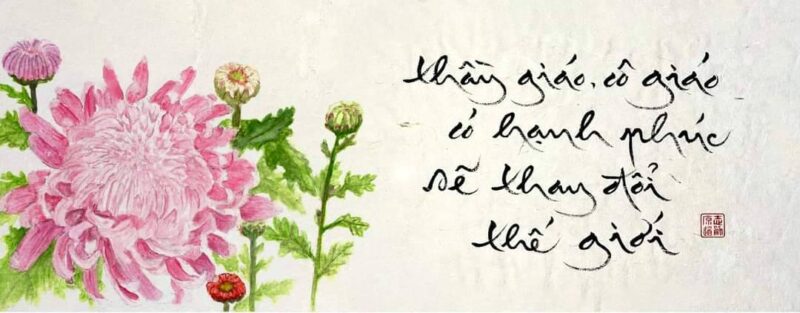 thầy giáo, cô giáo
có hạnh phúc
sẽ thay đổi
thế giới